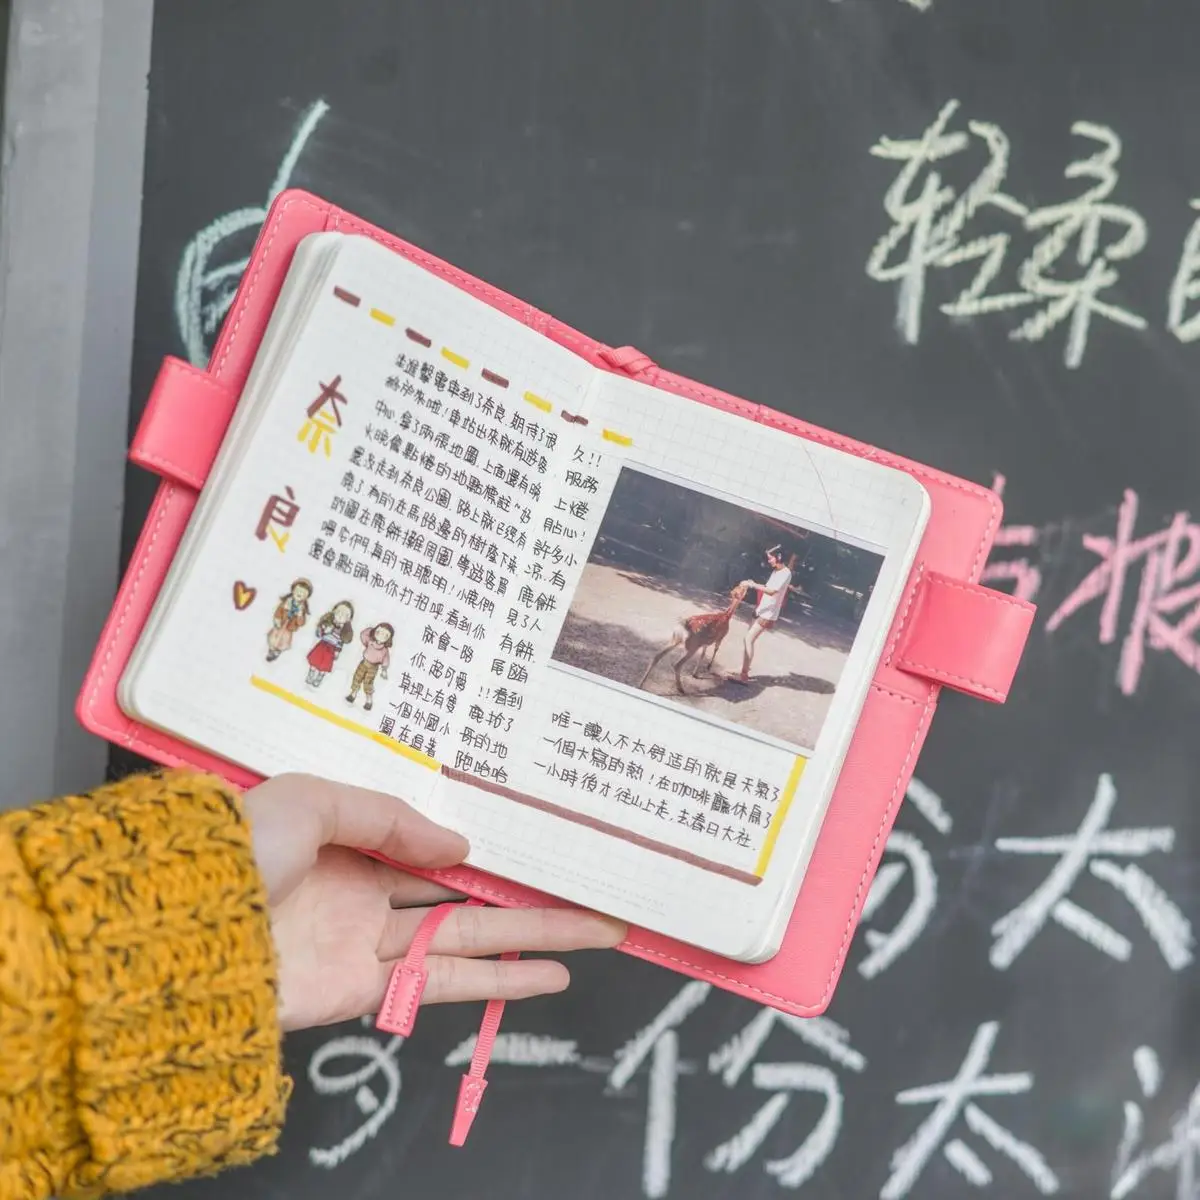 奈良
坐進擊電車到了奈良,期待了很久!!
終於來啦!車站出來就有遊客服務
中心,拿了兩張地圖,上面還有晚上燈
火晚會點燈的地點標註 好貼心!
還沒走到奈良公園,路上就已經有許多小
鹿了 的在馬路邊的樹蔭下乘涼,有
的圍在鹿餅攤周圍,等遊客買鹿餅
它們真的很聰明!小鹿們見了人
還會點頭和你打招呼,看到你有餅,
就會一路尾隨
你,超可愛!!看到
草坪上有隻鹿拍了
一個外國小哥的地
圖,在追著跑哈哈
唯一讓人不太舒適的就是天氣了,
一個大寫的熱!在咖啡廳休息了
一小時後才往山上走,去春日大社.
輕柔
披
份太
一份太